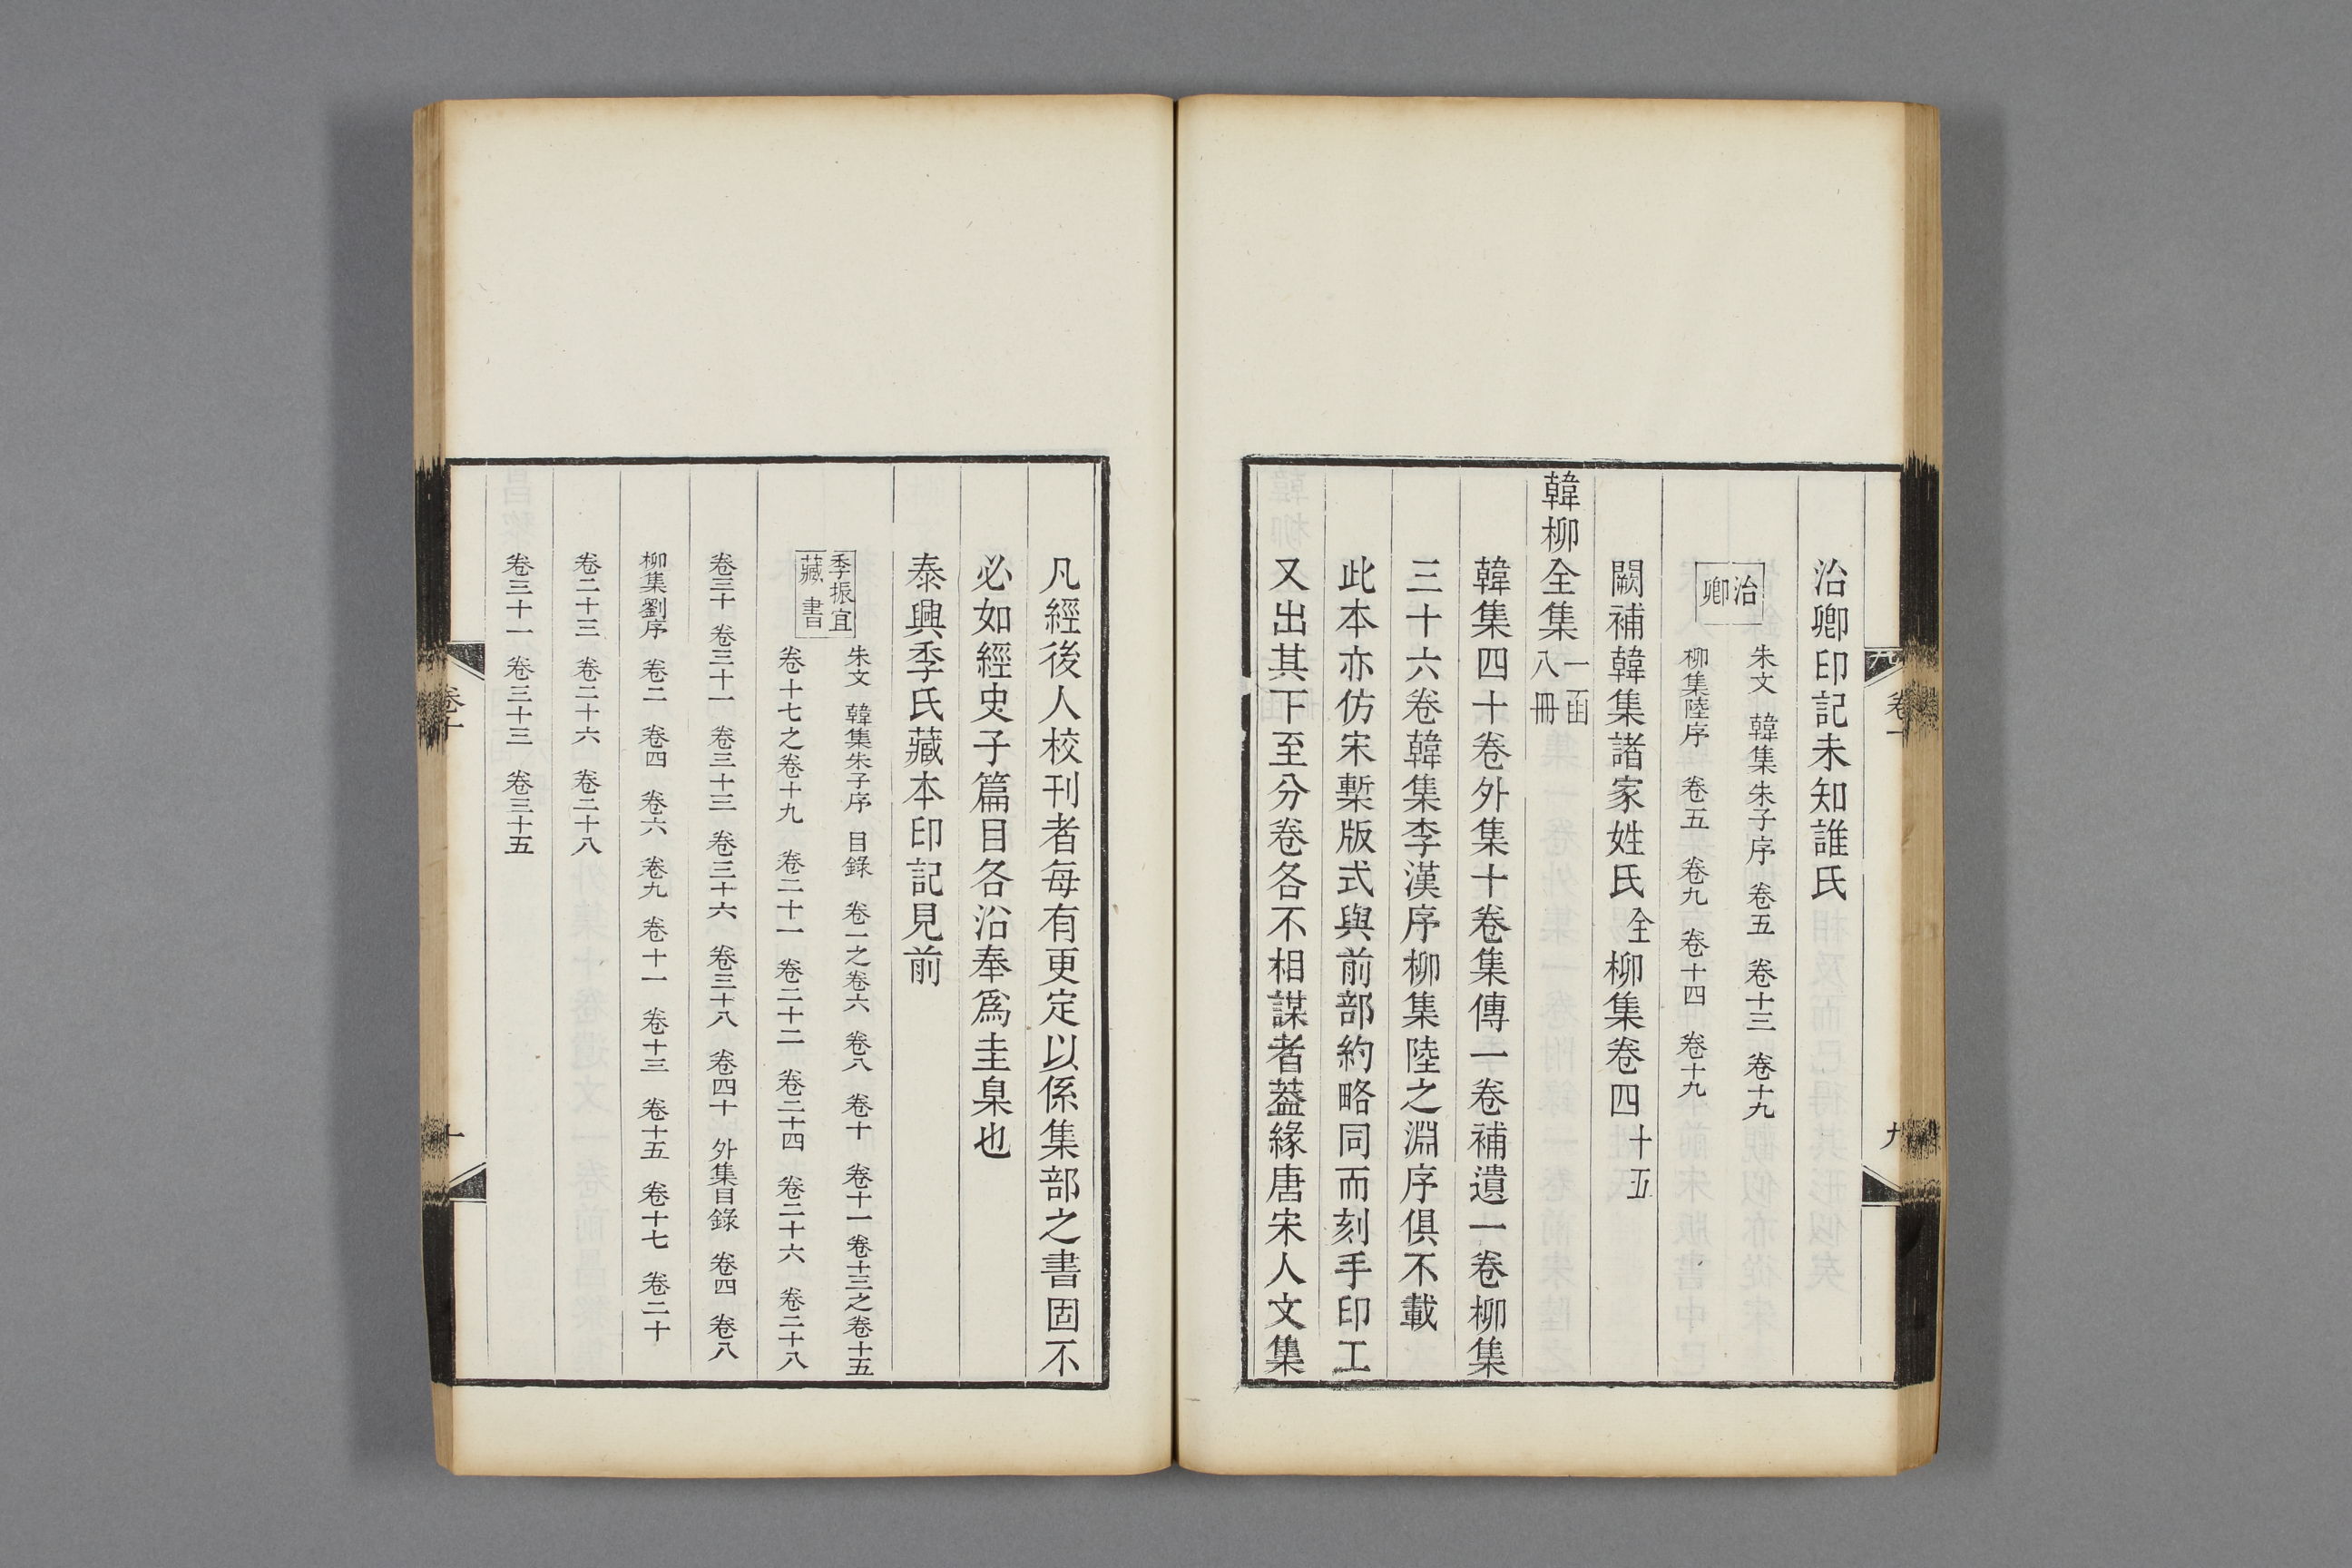 治卿印記未知誰氏
治卿
朱文 韓集朱子序 卷五 卷十三 卷十九
柳集陸序 卷五 卷九 卷十四 卷十九
闕補韓集諸家姓氏全柳集卷四十五
韓柳全集一函八冊
韓集四十卷外集十卷集傳一卷補遺一卷柳集
三十六卷韓集李漢序柳集陸之淵序俱不載
此本亦仿宋槧版式與前部約略同而刻手印工
又出其下至分卷各不相謀者葢緣唐宋人文集
凡經後人校刊者每有更定以係集部之書固不
必如經史子篇目各沿奉爲圭臬也
泰興季氏藏本印記見前
季振宜藏書
朱文 韓集朱子序 目錄 卷一之卷六 卷八 卷十 卷十一 卷十三之卷十五
卷十七之卷十九 卷二十一 卷二十二 卷二十四 卷二十六 卷二十八
卷三十 卷三十一 卷三十三 卷三十六 卷三十八 卷四十 外集目錄 卷四 卷八
柳集劉序 卷二 卷四 卷六 卷九 卷十一 卷十三 卷十五 卷十七 卷二十
卷二十三 卷二十六 卷二十八
卷三十一 卷三十三 卷三十五
卷十